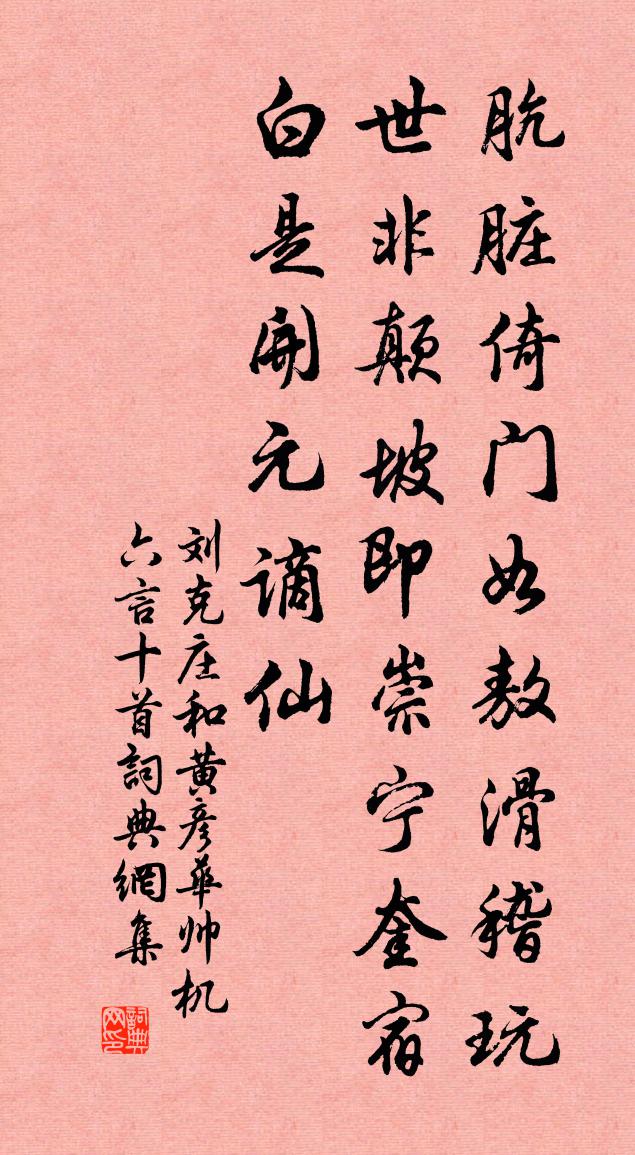 肮脏倚门如敖滑稽玩
世非颠坡即崇宁奎宿
白是開元谪仙
刘克庄和黄彦华帅机
六言十首詞典網集
詞典网印